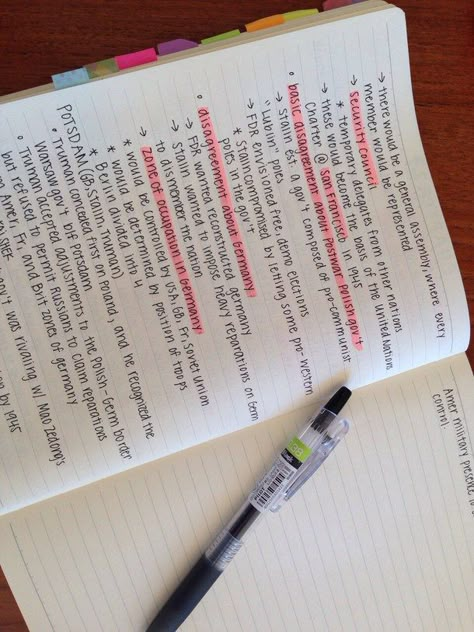 → there would be a general assembly, where every
member would be represented
→ security council
* temporary delegates from other nations
→ these would become the basis of the United Nations
Charter @ San Francisco in 1945
• basic disagreement about Postwar Polish gov't
→ Stalin est. a gov't composed of pro-communist
"Lublin" poles
→ FDR envisioned free, demo elections
* Stalin compromised by letting some pro-western
poles in the gov
• disagreement about Germany
→ FDR wanted reconstructed germany
→ Stalin wanted to impose heavy reparations on Germ
to dismember the nation
→ zone of occupation in Germany
* would be controlled by USA, GB, Fr, Soviet union
* would be determined by position of troops
* Berlin divided into 4
POTSDAM (GB, Stalin, Truman)
• Truman conceded first on Poland, and he recognized the
Warsaw gov't bf Potsdam
• Truman accepted adjustments to the Polish-Germ border
but refused to permit Russians to claim reparations
Amer, Fr, and Brit zone of germany
gov't was rivaling w/ Mao Zedong's
by 1945
Amer military presence
control
PILOT